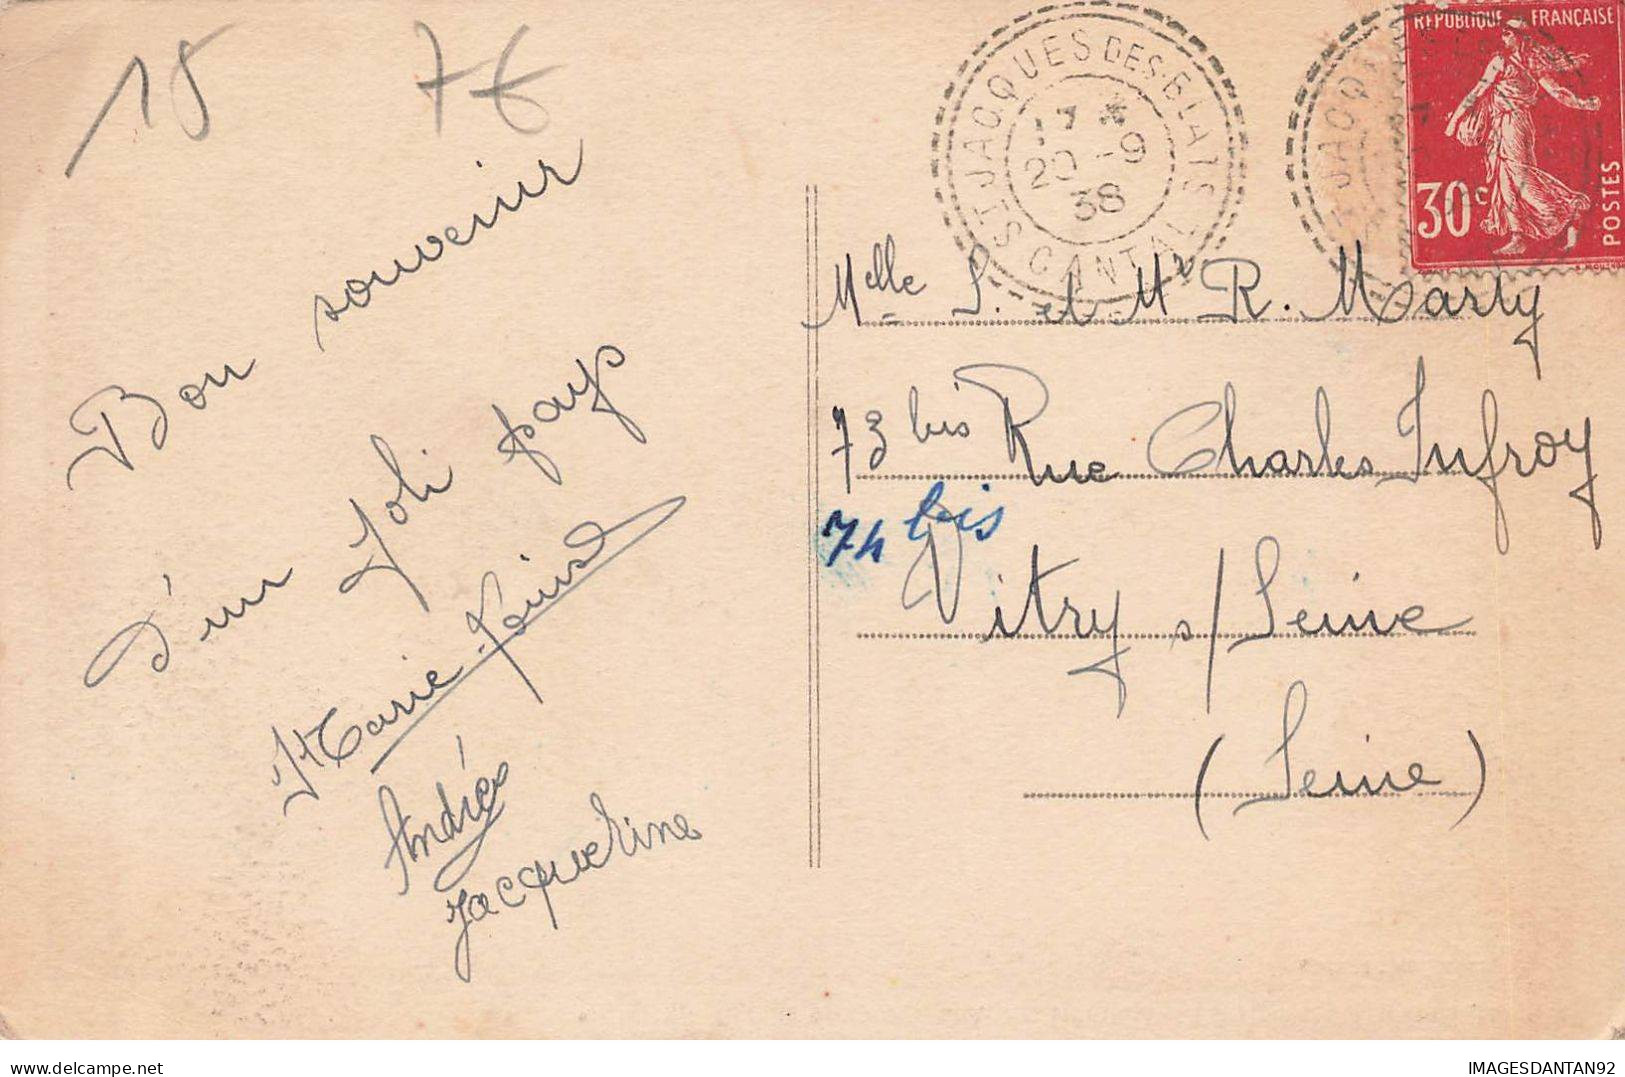 15 7€
Bon souvenir
d'un joli pays
Marie-Louise
Andrée
Jacqueline
ST JACQUES DES-BLATS
17 *
20 -9
38
CANTAL
RÉPUBLIQUE FRANÇAISE
30c
POSTES
Melle S. et Mr R. Marty
73 bis Rue Charles Infroy
74 bis
Vitry s/ Seine
(Seine)
IMAGESDANTAN92